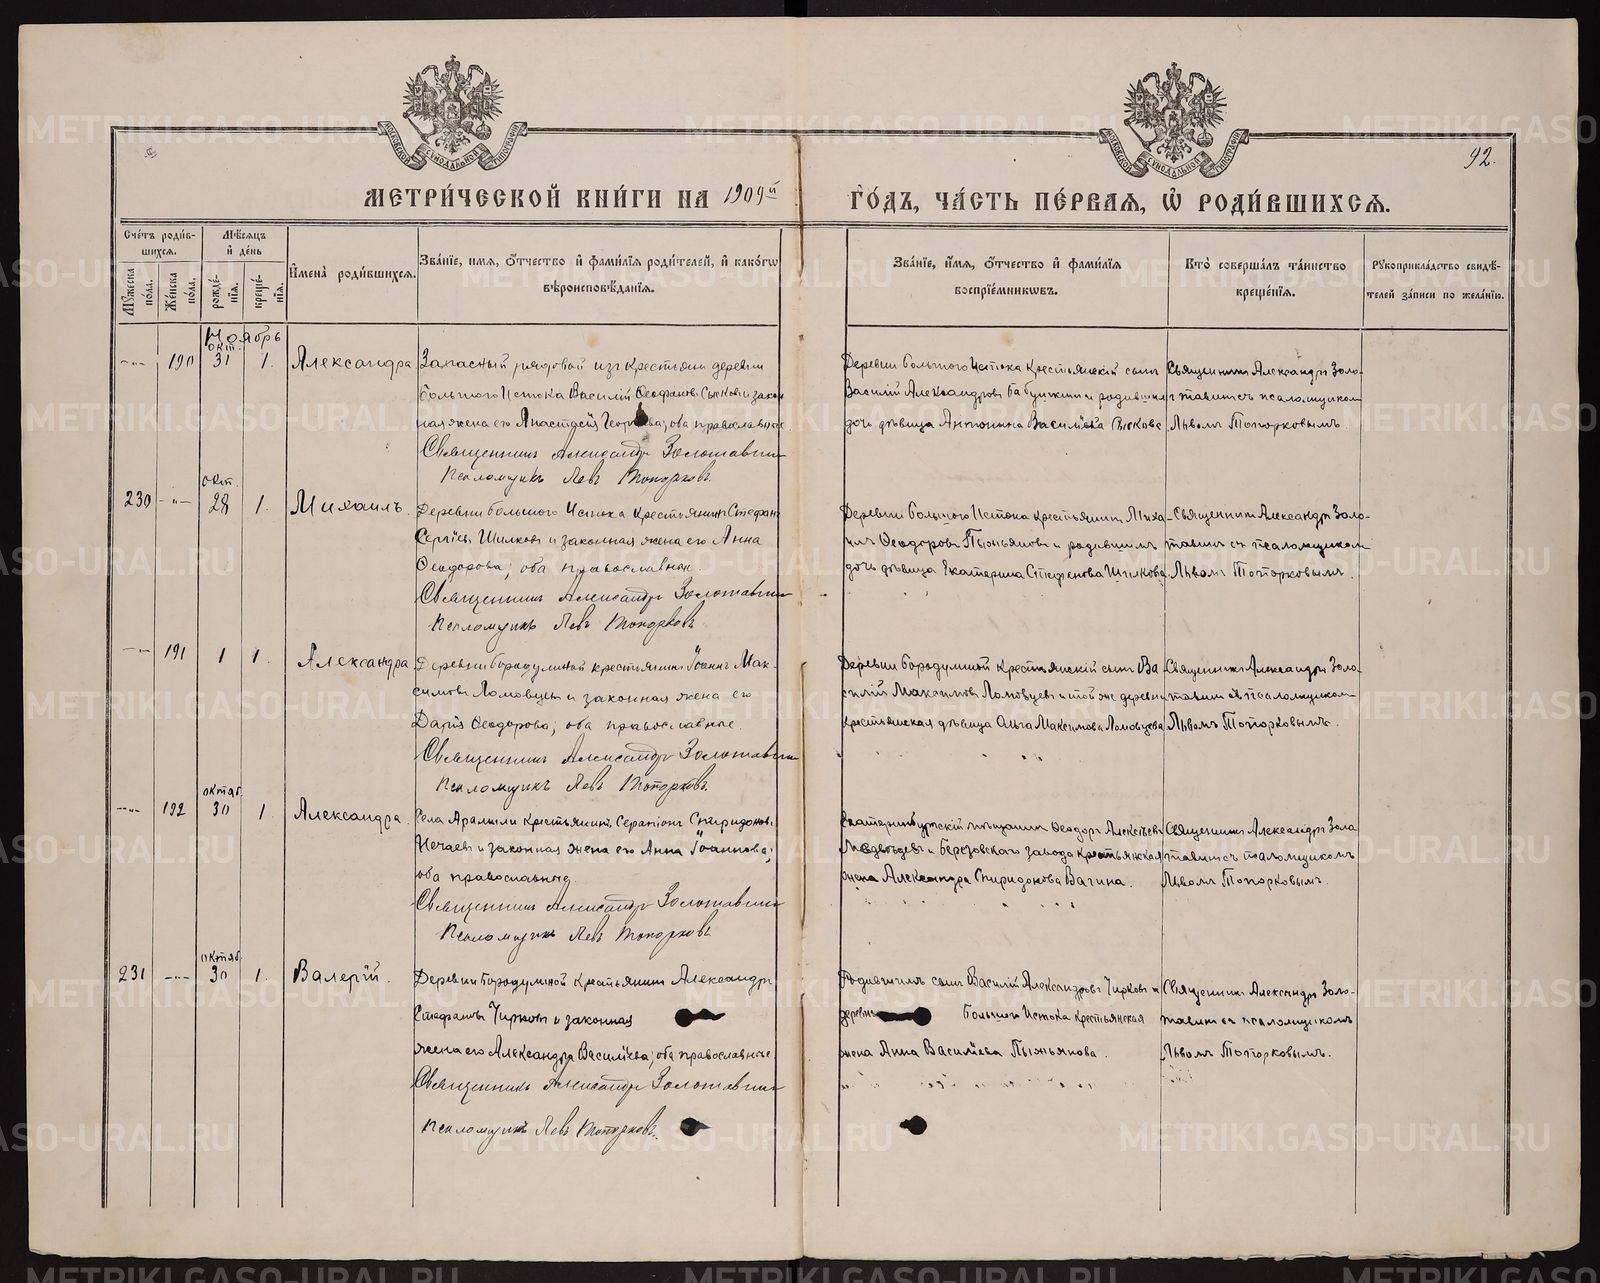 МОСКОВСКОЙ СѴНОДАЛЬНОЙ ТИПОГРАФІИ
МОСКОВСКОЙ СѴНОДАЛЬНОЙ ТИПОГРАФІИ
92.
МЕТРИ́ЧЕСКОЙ КНИ́ГИ НА 1909й ГО́ДЪ, ЧА́СТЬ ПЕ́РВАЯ, Ѡ РОДИ́ВШИХСѦ.
Сче́тъ роди́вшихся.
Мѣ́сяцъ и де́нь
Имена̀ роди́вшихся.
Зва́ніе, имя, о́тчество и фами́лія роди́телей, и како́гѡ вѣроисповѣ́данія.
Зва́ніе, и́мя, о́тчество и фами́лія воспріе́мниковъ.
Кто̀ соверша́лъ та́инство креще́нія.
Рукоприкла́дство свидѣ́телей за́писи по жела́нію.
Му́жеска по́ла.
Же́нска по́ла.
рожде́нія.
креще́нія.
Ноябрь
окт.
190 31 1. Александра
Запасный рядовой изъ крестьянъ деревни
Большого Истока Василій Ѳеофановъ Сысковъ и закон
ная жена его Анастасія Георгіева; оба православные.
Священникъ Александръ Золотавинъ
Псаломщикъ Левъ Топорковъ.
Деревни Большого Истока крестьянскій сынъ
Василій Александровъ Бабушкинъ и родившихъ
дочь дѣвица Антонина Васильева Сыскова
Священникъ Александръ Золо-
тавинъ съ псаломщикомъ
Львомъ Топорковымъ.
окт.
230 28 1. Михаилъ.
Деревни Большого Истока крестьянинъ Стефанъ
Сергіевъ Шилковъ и законная жена его Анна
Ѳеодорова; оба православные.
Священникъ Александръ Золотавинъ
Псаломщикъ Левъ Топорковъ.
Деревни Большого Истока крестьянинъ Миха-
илъ Ѳеодоровъ Пьяньковъ и родившихъ
дочь дѣвица Екатерина Стефанова Шилкова
Священникъ Александръ Золо-
тавинъ съ псаломщикомъ
Львомъ Топорковымъ.
191 1 1. Александра
Деревни Бородулиной крестьянинъ Іоаннъ Мак-
симовъ Ломовцевъ и законная жена его
Дарія Ѳеодорова; оба православные.
Священникъ Александръ Золотавинъ
Псаломщикъ Левъ Топорковъ.
Деревни Бородулиной крестьянскій сынъ Ва-
силій Максимовъ Ломовцевъ и той же деревни
крестьянская дѣвица Ольга Максимова Ломовцева
Священникъ Александръ Золо-
тавинъ съ псаломщикомъ
Львомъ Топорковымъ.
октяб.
192 30 1 Александра.
Села Арамили крестьянинъ Серапіонъ Спиридоновъ
Нечаевъ и законная жена его Анна Іоаннова;
оба православные.
Священникъ Александръ Золотавинъ
Псаломщикъ Левъ Топорковъ
Екатеринбургскій мѣщанинъ Ѳеодоръ Алексѣевъ
Медвѣдевъ и Березовскаго завода крестьянская
жена Александра Спиридонова Вагина.
Священникъ Александръ Золо
тавинъ съ псаломщикомъ
Львомъ Топорковымъ.
октяб.
231 30 1. Валерій.
Деревни Бородулиной крестьянинъ Александръ
Стефановъ Чирковъ и законная
жена его Александра Васильева; оба православные.
Священникъ Александръ Золотавинъ
Псаломщикъ Левъ Топорковъ.
Родившихъ сынъ Василій Александровъ Чирковъ и
деревни Большого Истока крестьянская
жена Анна Васильева Пьянькова.
Священникъ Александръ Золо-
тавинъ съ псаломщикомъ
Львомъ Топорковымъ.
METRIKI.GASO-URAL.RU